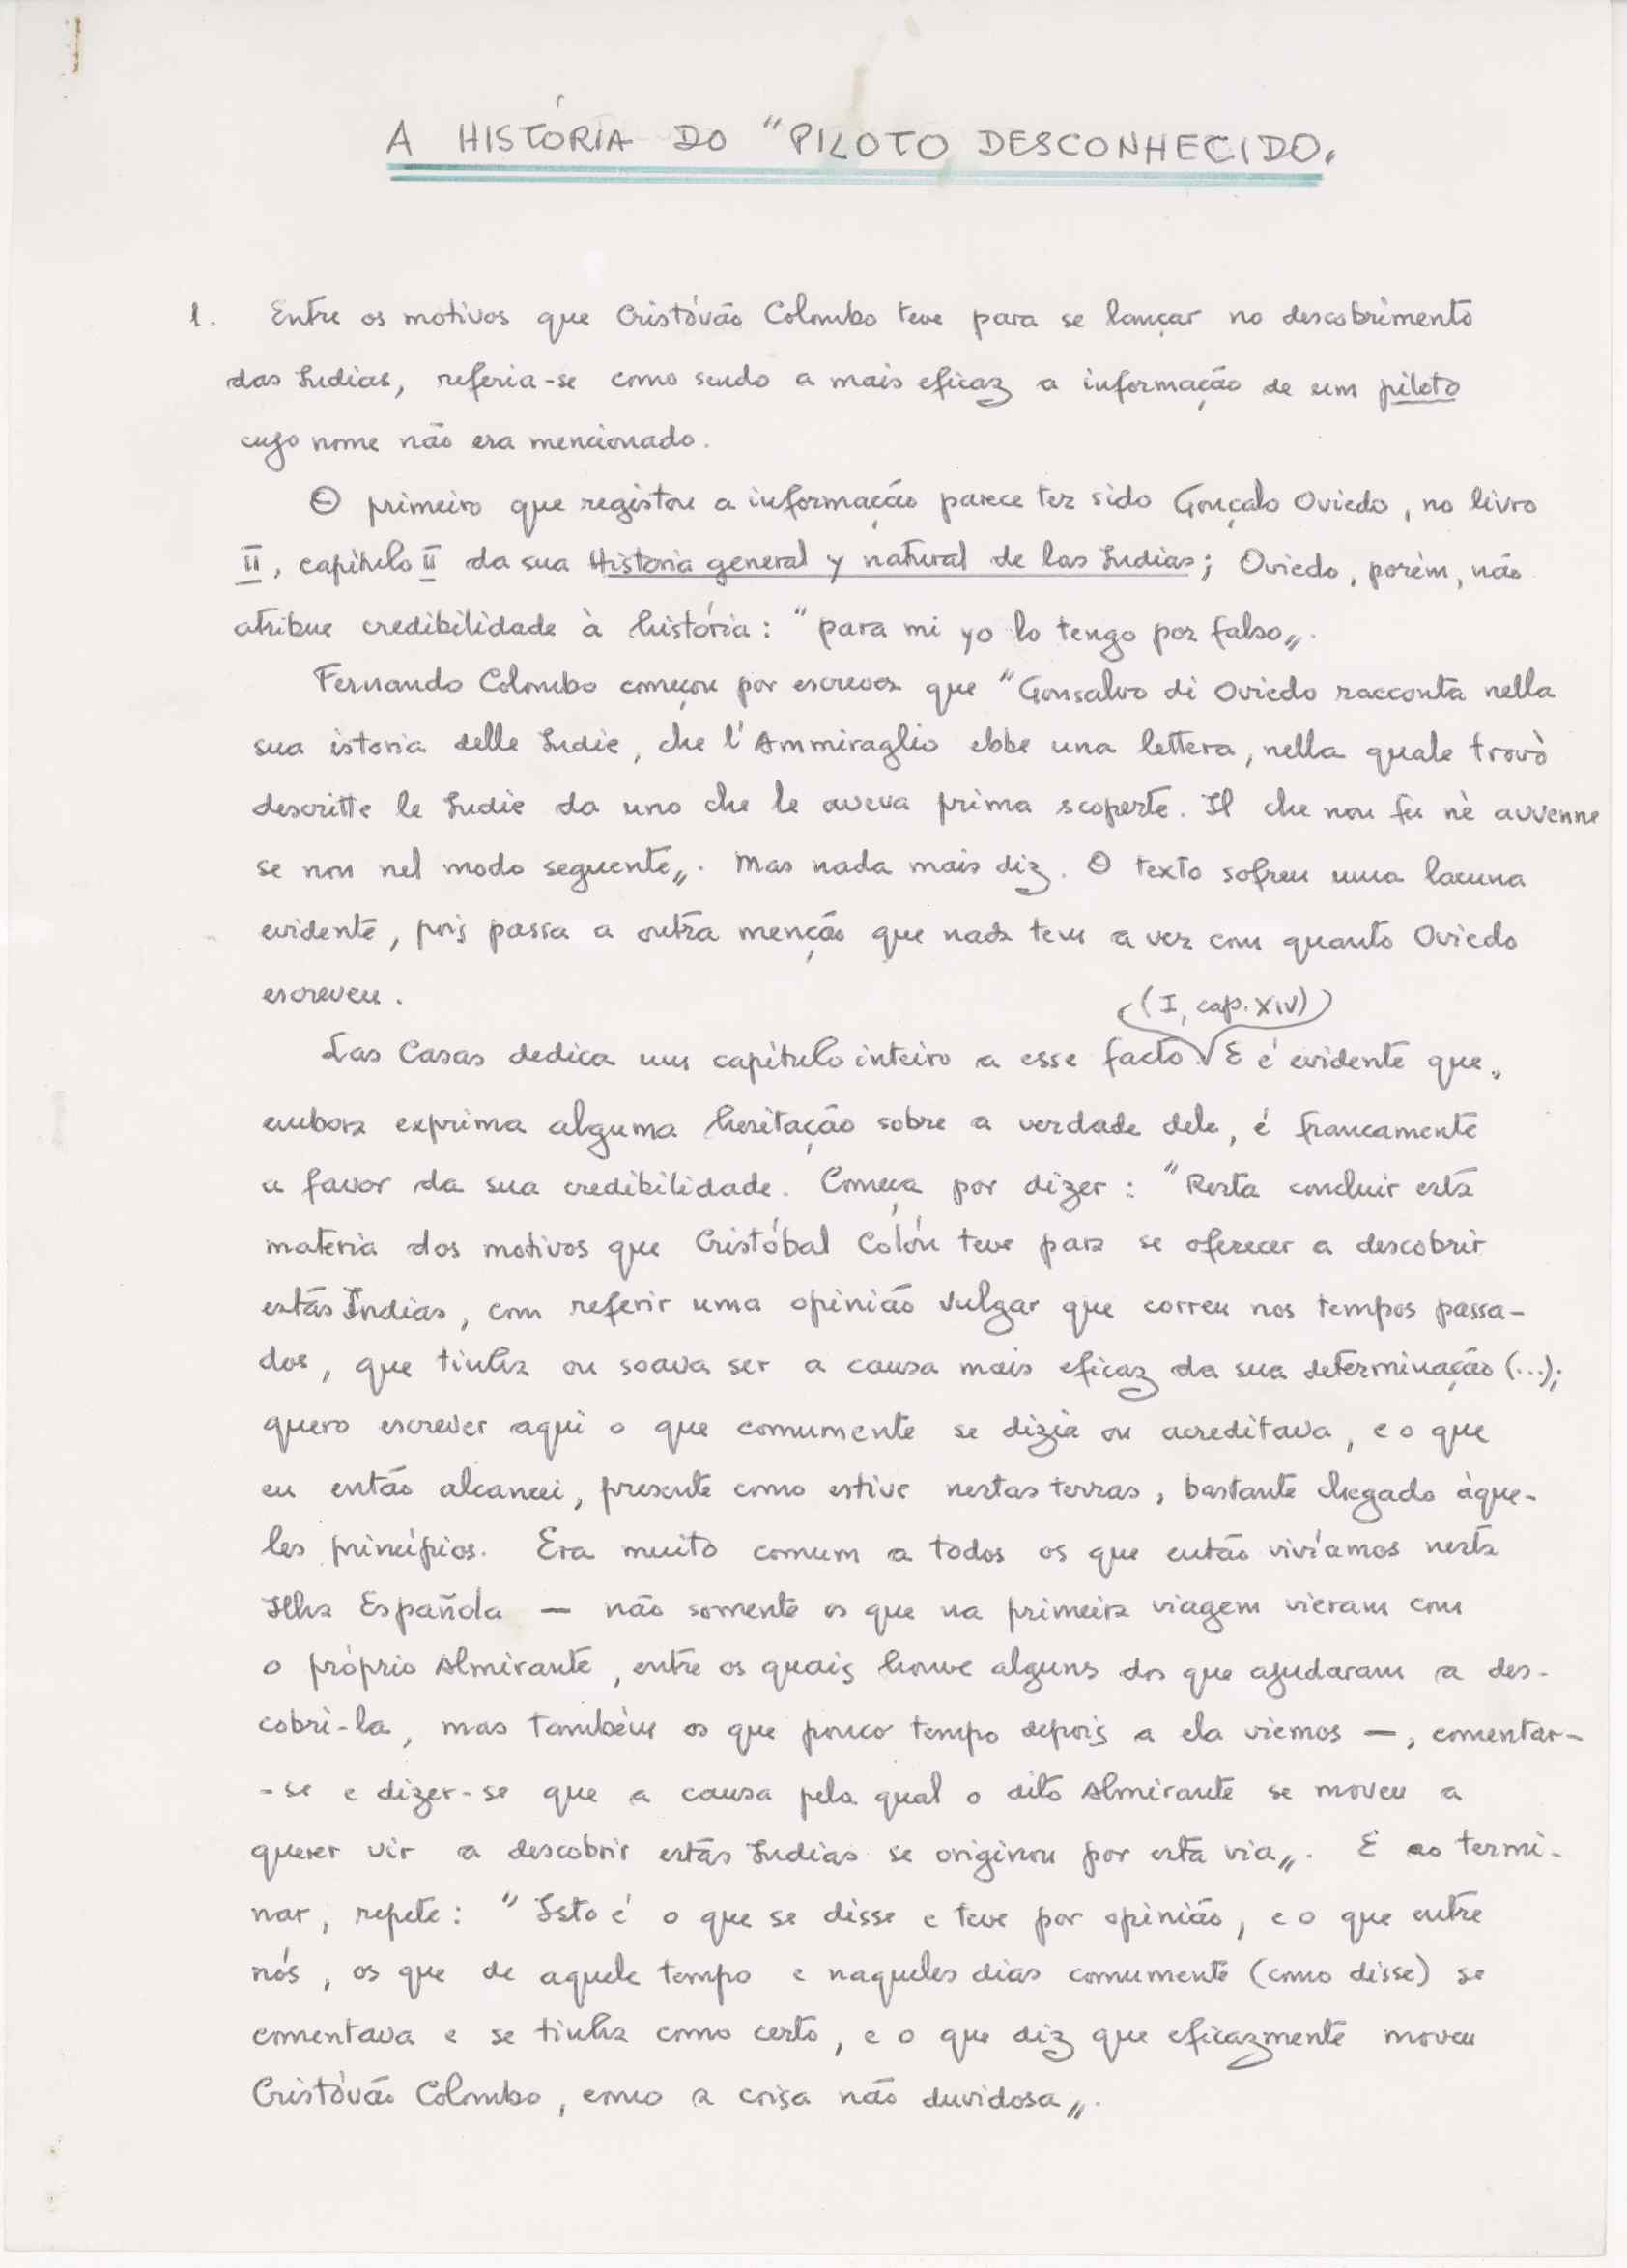 A HISTÓRIA DO "PILOTO DESCONHECIDO„
1. Entre os motivos que Cristóvão Colombo teve para se lançar no descobrimento
das Indias, referia-se como sendo a mais eficaz a informação de um piloto
cujo nome não era mencionado.
O primeiro que registou a informação parece ter sido Gonçalo Oviedo, no livro
II, capítulo II da sua Historia general y natural de las Indias; Oviedo, porém, não
atribue credibilidade à história: "para mi yo lo tengo por falso„.
Fernando Colombo começou por escrever que "Gonsalvo di Oviedo racconta nella
sua istoria delle Indie, che l'Ammiraglio ebbe una lettera, nella quale trovò
descritte le Indie da uno che le aveva prima scoperte. Il che non fu nè avvenne
se non nel modo seguente„. Mas nada mais diz. O texto sofreu uma lacuna
evidente, pois passa a outra menção que nada tem a ver com quanto Oviedo
escreveu.
(I, cap. XIV)
Las Casas dedica um capítulo inteiro a esse facto. E é evidente que,
embora exprima alguma hesitação sobre a verdade dele, é francamente
a favor da sua credibilidade. Começa por dizer: "Resta concluir esta
materia dos motivos que Cristóbal Colón teve para se oferecer a descobrir
estas Indias, com referir uma opinião vulgar que correu nos tempos passa-
dos, que tinha ou soava ser a causa mais eficaz da sua determinação (...);
quero escrever aqui o que comumente se dizia ou acreditava, e o que
eu então alcancei, presente como estive nestas terras, bastante chegado àque-
les princípios. Era muito comum a todos os que então vivíamos nesta
Ilha Española — não somente os que na primeira viagem vieram com
o próprio Almirante, entre os quais houve alguns dos que ajudaram a des-
cobri-la, mas também os que pouco tempo depois a ela viemos —, comentar-
-se e dizer-se que a causa pela qual o dito Almirante se moveu a
querer vir a descobrir estas Indias se originou por esta via„. E ao termi-
nar, repete: "Isto é o que se disse e teve por opinião, e o que entre
nós, os que de aquele tempo e naqueles dias comumente (como disse) se
comentava e se tinha como certo, e o que diz que eficazmente moveu
Cristóvão Colombo, como a coisa não duvidosa„.